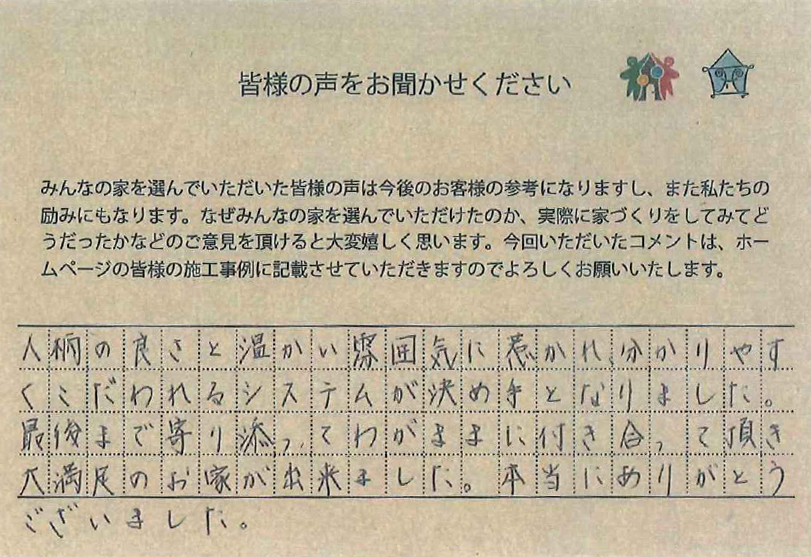 皆様の声をお聞かせください
みんなの家を選んでいただいた皆様の声は今後のお客様の参考になりますし、また私たちの
励みにもなります。なぜみんなの家を選んでいただけたのか、実際に家づくりをしてみてど
うだったかなどのご意見を頂けると大変嬉しく思います。今回いただいたコメントは、ホー
ムページの皆様の施工事例に記載させていただきますのでよろしくお願いいたします。
人柄の良さと温かい雰囲気に惹かれ、分かりやす
くこだわれるシステムが決め手となりました。
最後まで寄り添ってわがままに付き合って頂き
大満足のお家が出来ました。本当にありがとう
ございました。